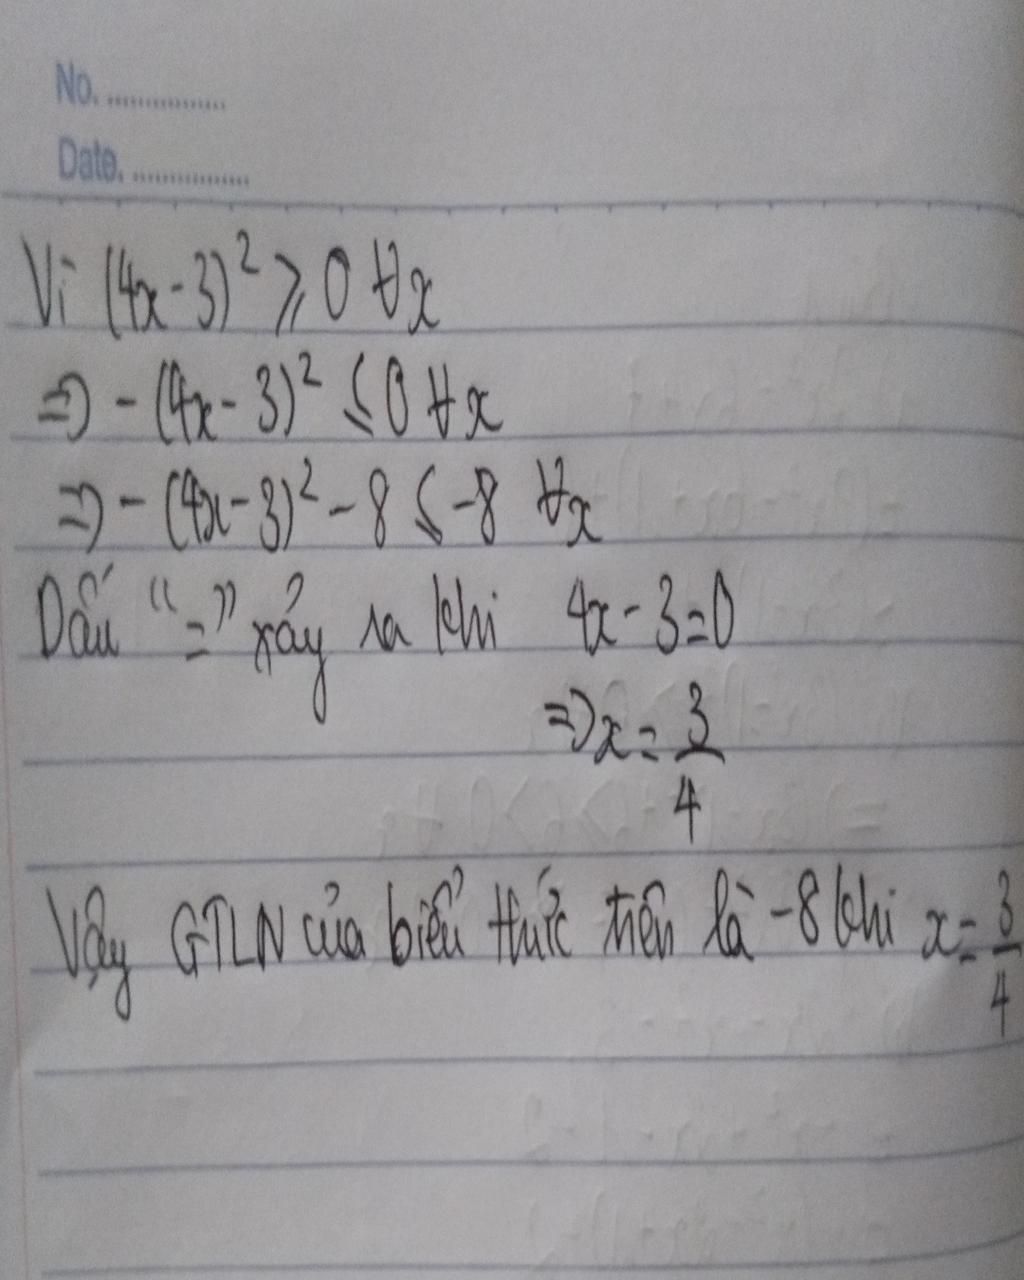 No. ...............
Date. ...............
Vì (4x-3)² ⩾ 0 ∀x
=> - (4x - 3)² ≤ 0 ∀x
=> - (4x-3)² - 8 ≤ -8 ∀x
Dấu "=" xảy ra khi 4x-3=0
=> x = 3/4
Vậy GTLN của biểu thức trên là -8 khi x = 3/4